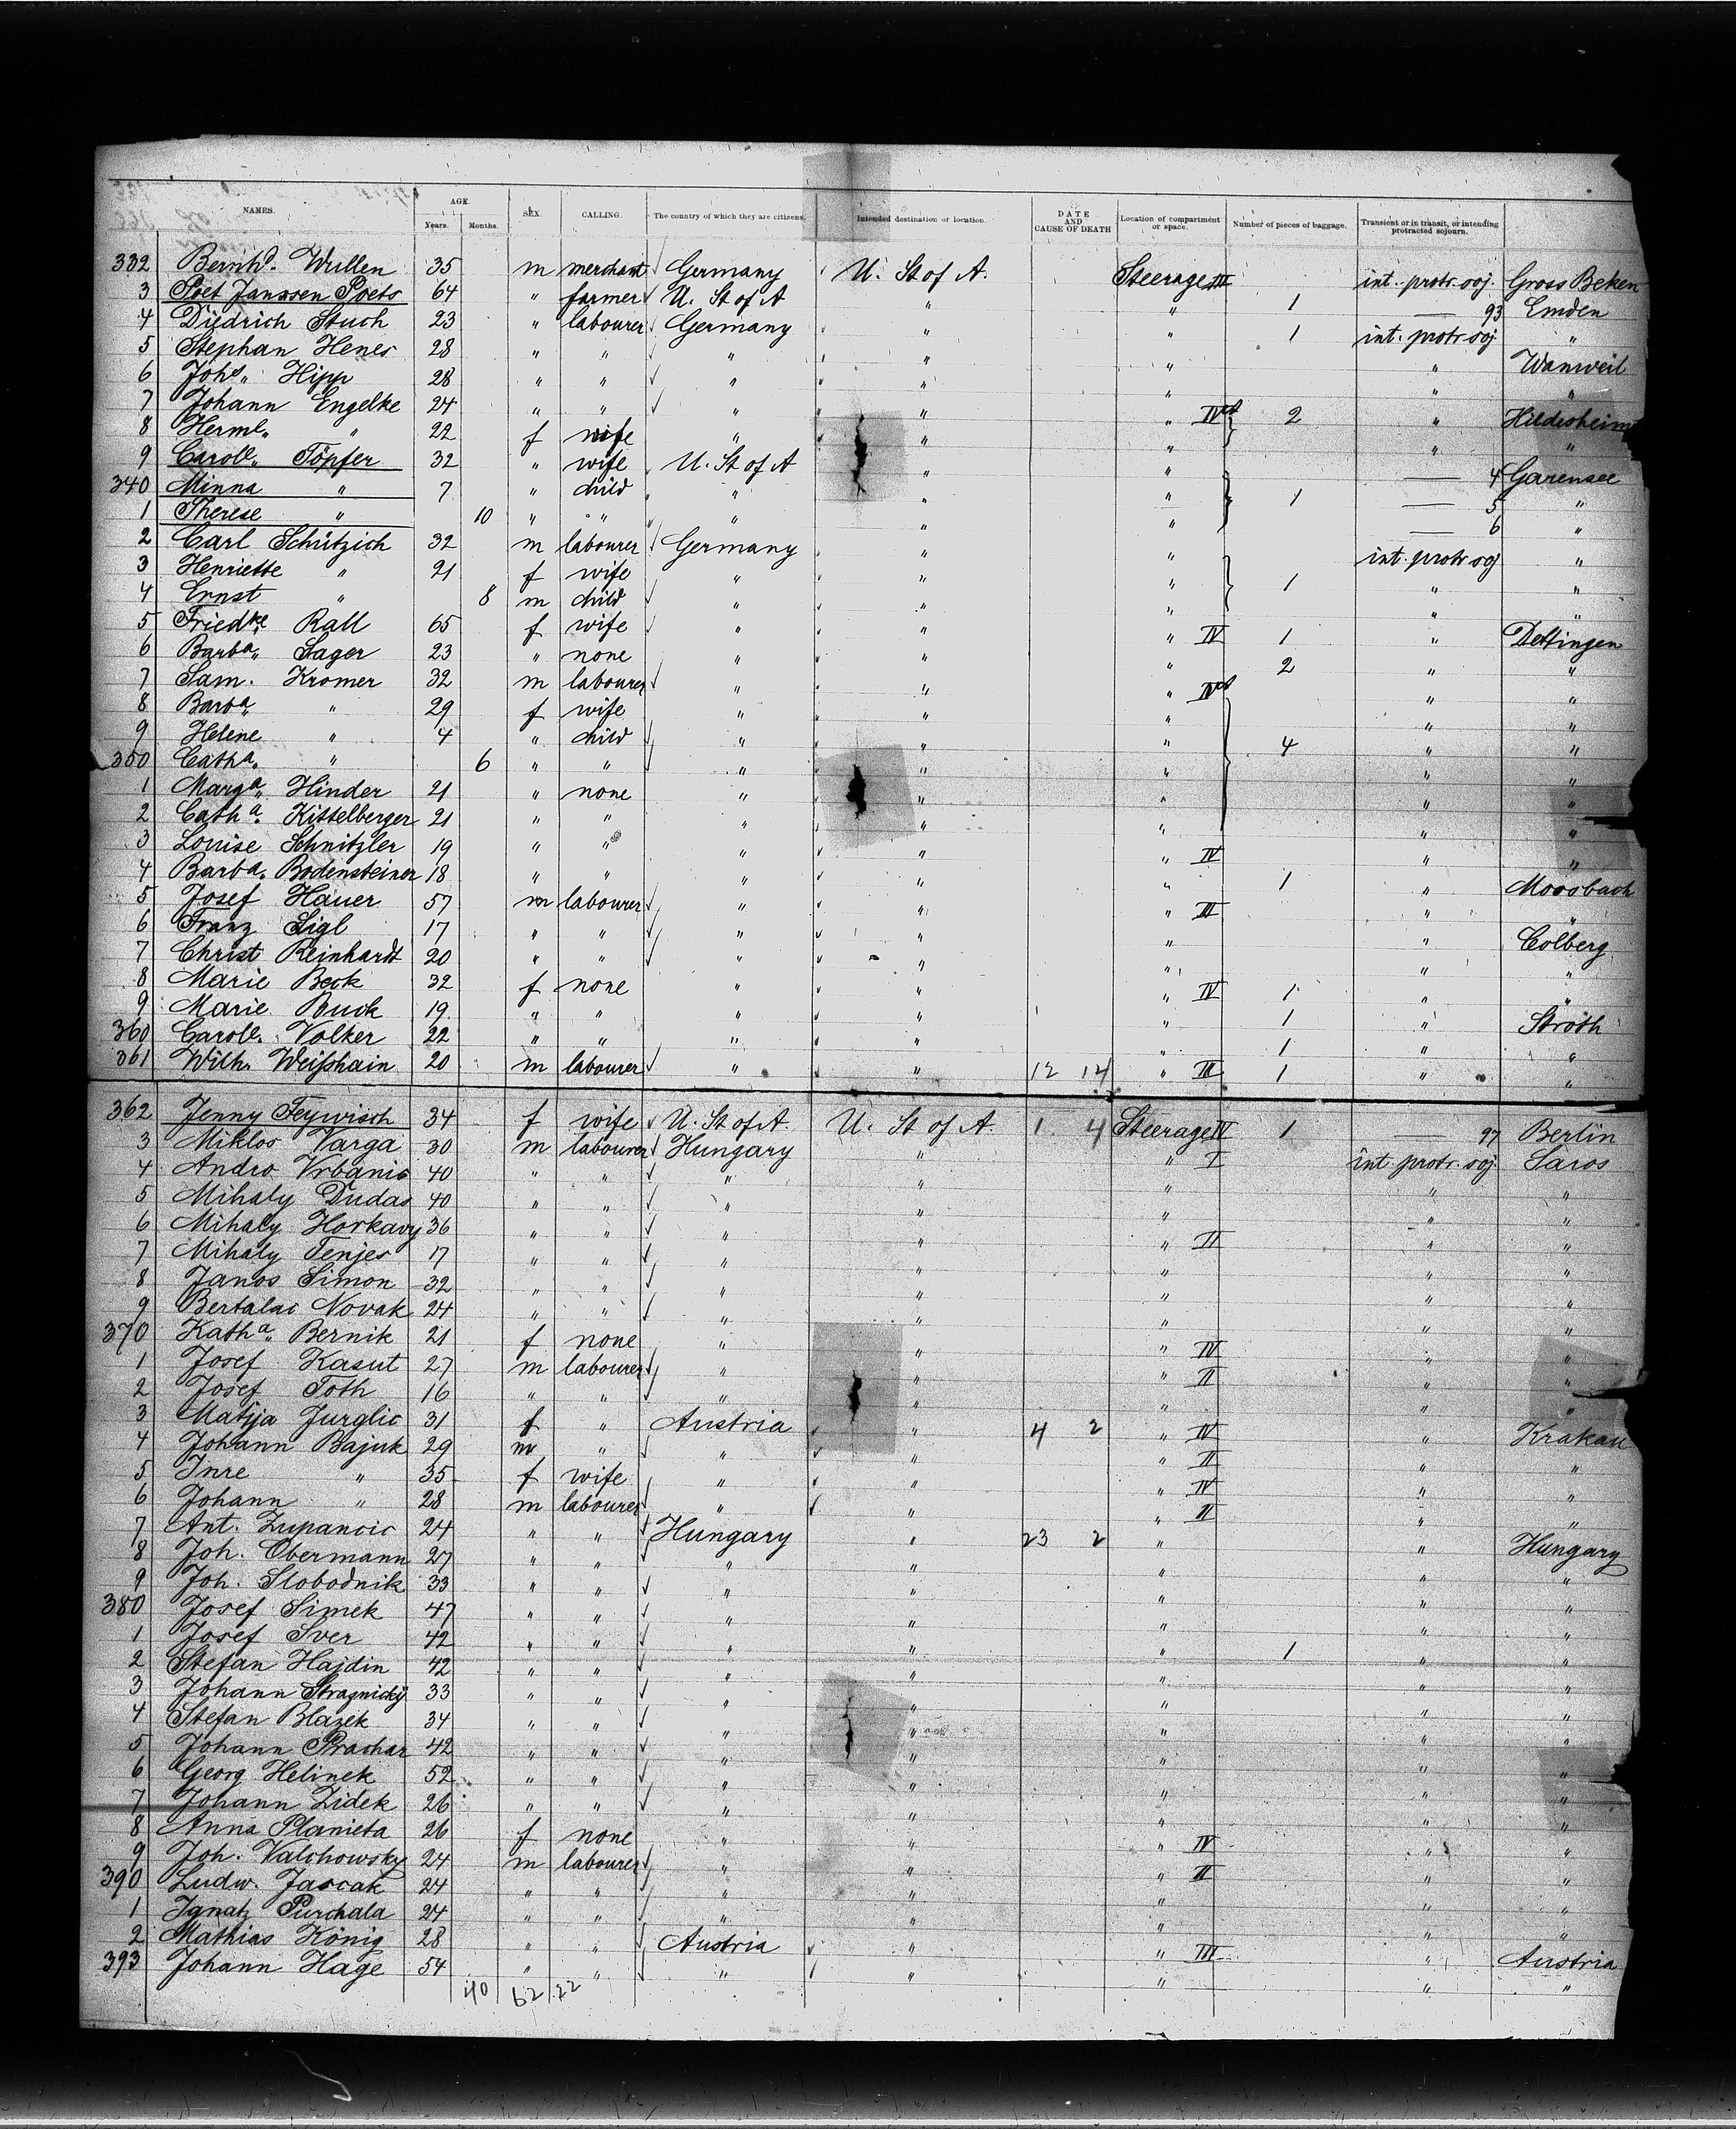 NAMES. AGE. Years. Months. SEX. CALLING. The country of which they are citizens. Intended destination or location. DATE AND CAUSE OF DEATH Location of compartment or space. Number of pieces of baggage. Transient or in transit, or intending protracted sojourn.
332 Bernhd. Wullen 35 m merchant Germany U. St of A. Steerage III int. protr. soj. Gross Beken
3 Poet Janssen Poets 64 " farmer U. St of A " " 1 — 93 Emden
4 Diedrich Stuch 23 " labourer Germany " " 1 int. protr soj "
5 Stephan Henes 28 " " " " " " Wanweil
6 Johs. Hipp 28 " " " " " " "
7 Johann Engelke 24 " " " " " IV 2 " Hildesheim
8 Herml. " 22 f wife " " " " "
9 Carole. Töpfer 32 " wife U. St of A " " — 4 Garensee
340 Minna " 7 " child " " " 1 — 5 "
1 Therese " 10 " " " " " — 6 "
2 Carl Schützich 32 m labourer Germany " " int. protr soj "
3 Henriette " 21 f wife " " " 1 " "
4 Ernst " 8 m child " " " " "
5 Friedke. Rall 65 f wife " " " IV 1 " Dettingen
6 Barba. Sager 23 " none " " " 2 " "
7 Sam. Kromer 32 m labourer " " " IV " "
8 Barba " 29 f wife " " " " "
9 Helene " 4 " child " " " 4 " "
350 Catha. " 6 " " " " " " "
1 Marga. Hinder 21 " none " " " " "
2 Catha. Kittelberger 21 " " " " " " "
3 Louise Schnitzler 19 " " " " " IV " "
4 Barba. Bodensteiner 18 " " " " " 1 " Moosbach
5 Josef Hauer 57 m labourer " " " III " "
6 Franz Sigl 17 " " " " " " Colberg
7 Christ Reinhardt 20 " " " " " " "
8 Marie Beck 32 f none " " " IV 1 " "
9 Marie Buck 19 " " " " " 1 " Ströth
360 Carole. Volker 22 " " " " " 1 " "
361 Wilh. Weißhain 20 m labourer " " 12 14 " III 1 " "
362 Jenny Feywisch 34 f wife U. St of A. U. St of A. 1 4 Steerage IV 1 — 97 Berlin
3 Miklos Varga 30 m labourer Hungary " " I int protr. soj. Saros
4 Andro Vrbanic 40 " " " " " " "
5 Mihaly Dudas 40 " " " " " " "
6 Mihaly Horkavy 36 " " " " " II " "
7 Mihaly Tenjes 17 " " " " " " "
8 Janos Simon 32 " " " " " " "
9 Bertalac Novak 24 " " " " " " "
370 Katha. Bernik 21 f none " " " IV " "
1 Josef Kasut 27 m labourer " " " II " "
2 Josef Toth 16 " " " " " " "
3 Matija Jurglic 31 f " Austria " 4 2 " IV " Krakau
4 Johann Bajuk 29 m " " " " II " "
5 Inre " 35 f wife " " " IV " "
6 Johann " 28 m labourer " " " II " "
7 Ant. Zupancic 24 " " Hungary " 23 2 " " Hungary
8 Joh. Obermann 27 " " " " " " "
9 Joh. Slobodnik 33 " " " " " " "
380 Josef Simek 47 " " " " " " "
1 Josef Sver 42 " " " " " 1 " "
2 Stefan Hajdin 42 " " " " " " "
3 Johann Straznický 33 " " " " " " "
4 Stefan Blazek 34 " " " " " " "
5 Johann Prachar 42 " " " " " " "
6 Georg Helinek 52 " " " " " " "
7 Johann Zidek 26 " " " " " " "
8 Anna Planieta 26 f none " " " IV " "
9 Joh. Valchowsky 24 m labourer " " " II " "
390 Ludw. Jascak 24 " " " " " " "
1 Ignatz Purchala 24 " " " " " " "
2 Mathias König 28 " " Austria " " III " Austria
393 Johann Hage 54 " " " " " " "
40 62 22